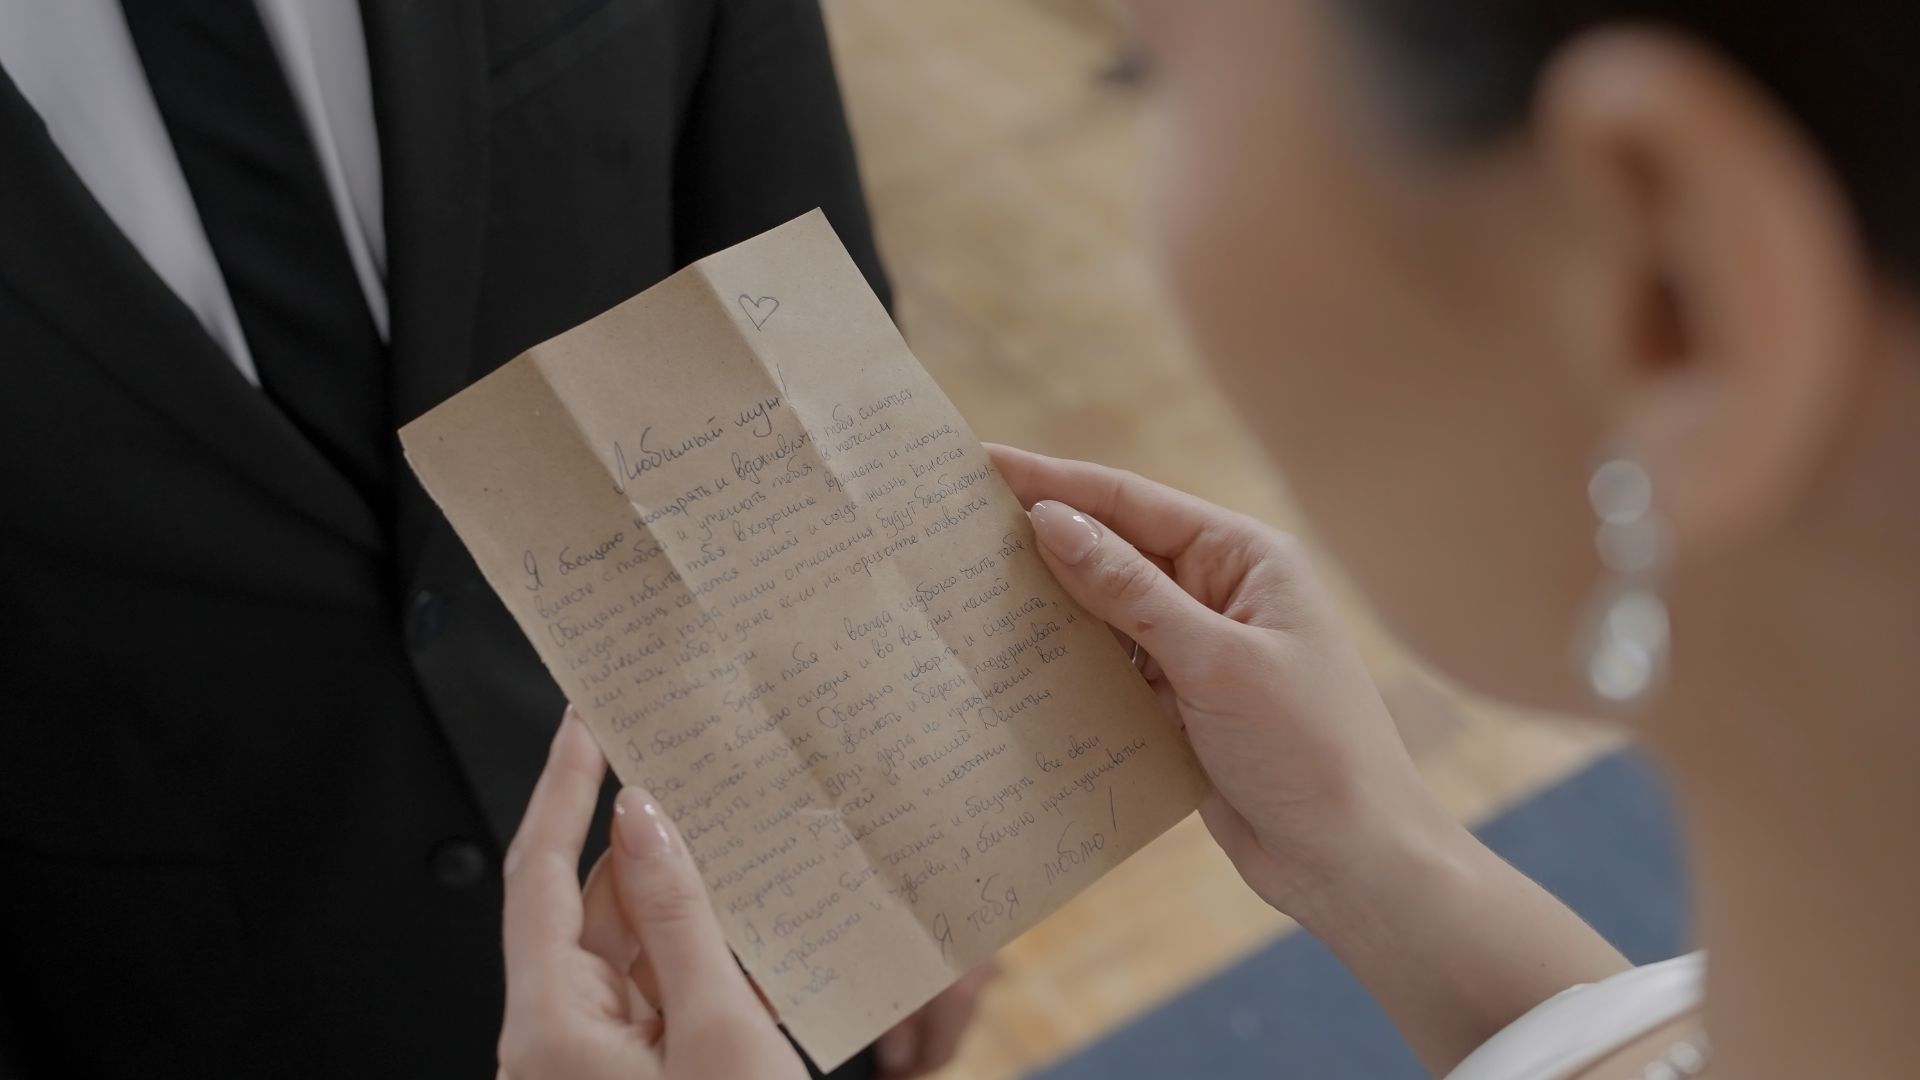 Любимый муж!
Я обещаю поощрять и вдохновлять тебя, смеяться
вместе с тобой и утешать тебя в печали.
Обещаю любить тебя в хорошие времена и плохие,
когда жизнь кажется лёгкой и когда жизнь кажется
тяжелой, когда наши отношения будут безоблачны-
ми как небо, и даже если на горизонте появятся
свинцовые тучи
Я обещаю беречь тебя и всегда глубоко чтить тебя.
Все это я обещаю сегодня и во все дни нашей
совместной жизни. Обещаю говорить и слушать,
доверять и ценить, уважать и беречь, поддерживать и
делать сильней друг друга на протяжении всех
жизненных радостей и печалей. Делиться
надеждами, мыслями и мечтами
Я обещаю быть честной и обсуждать все свои
потребности и чувства, я обещаю прислушиваться
к тебе
Я тебя люблю!